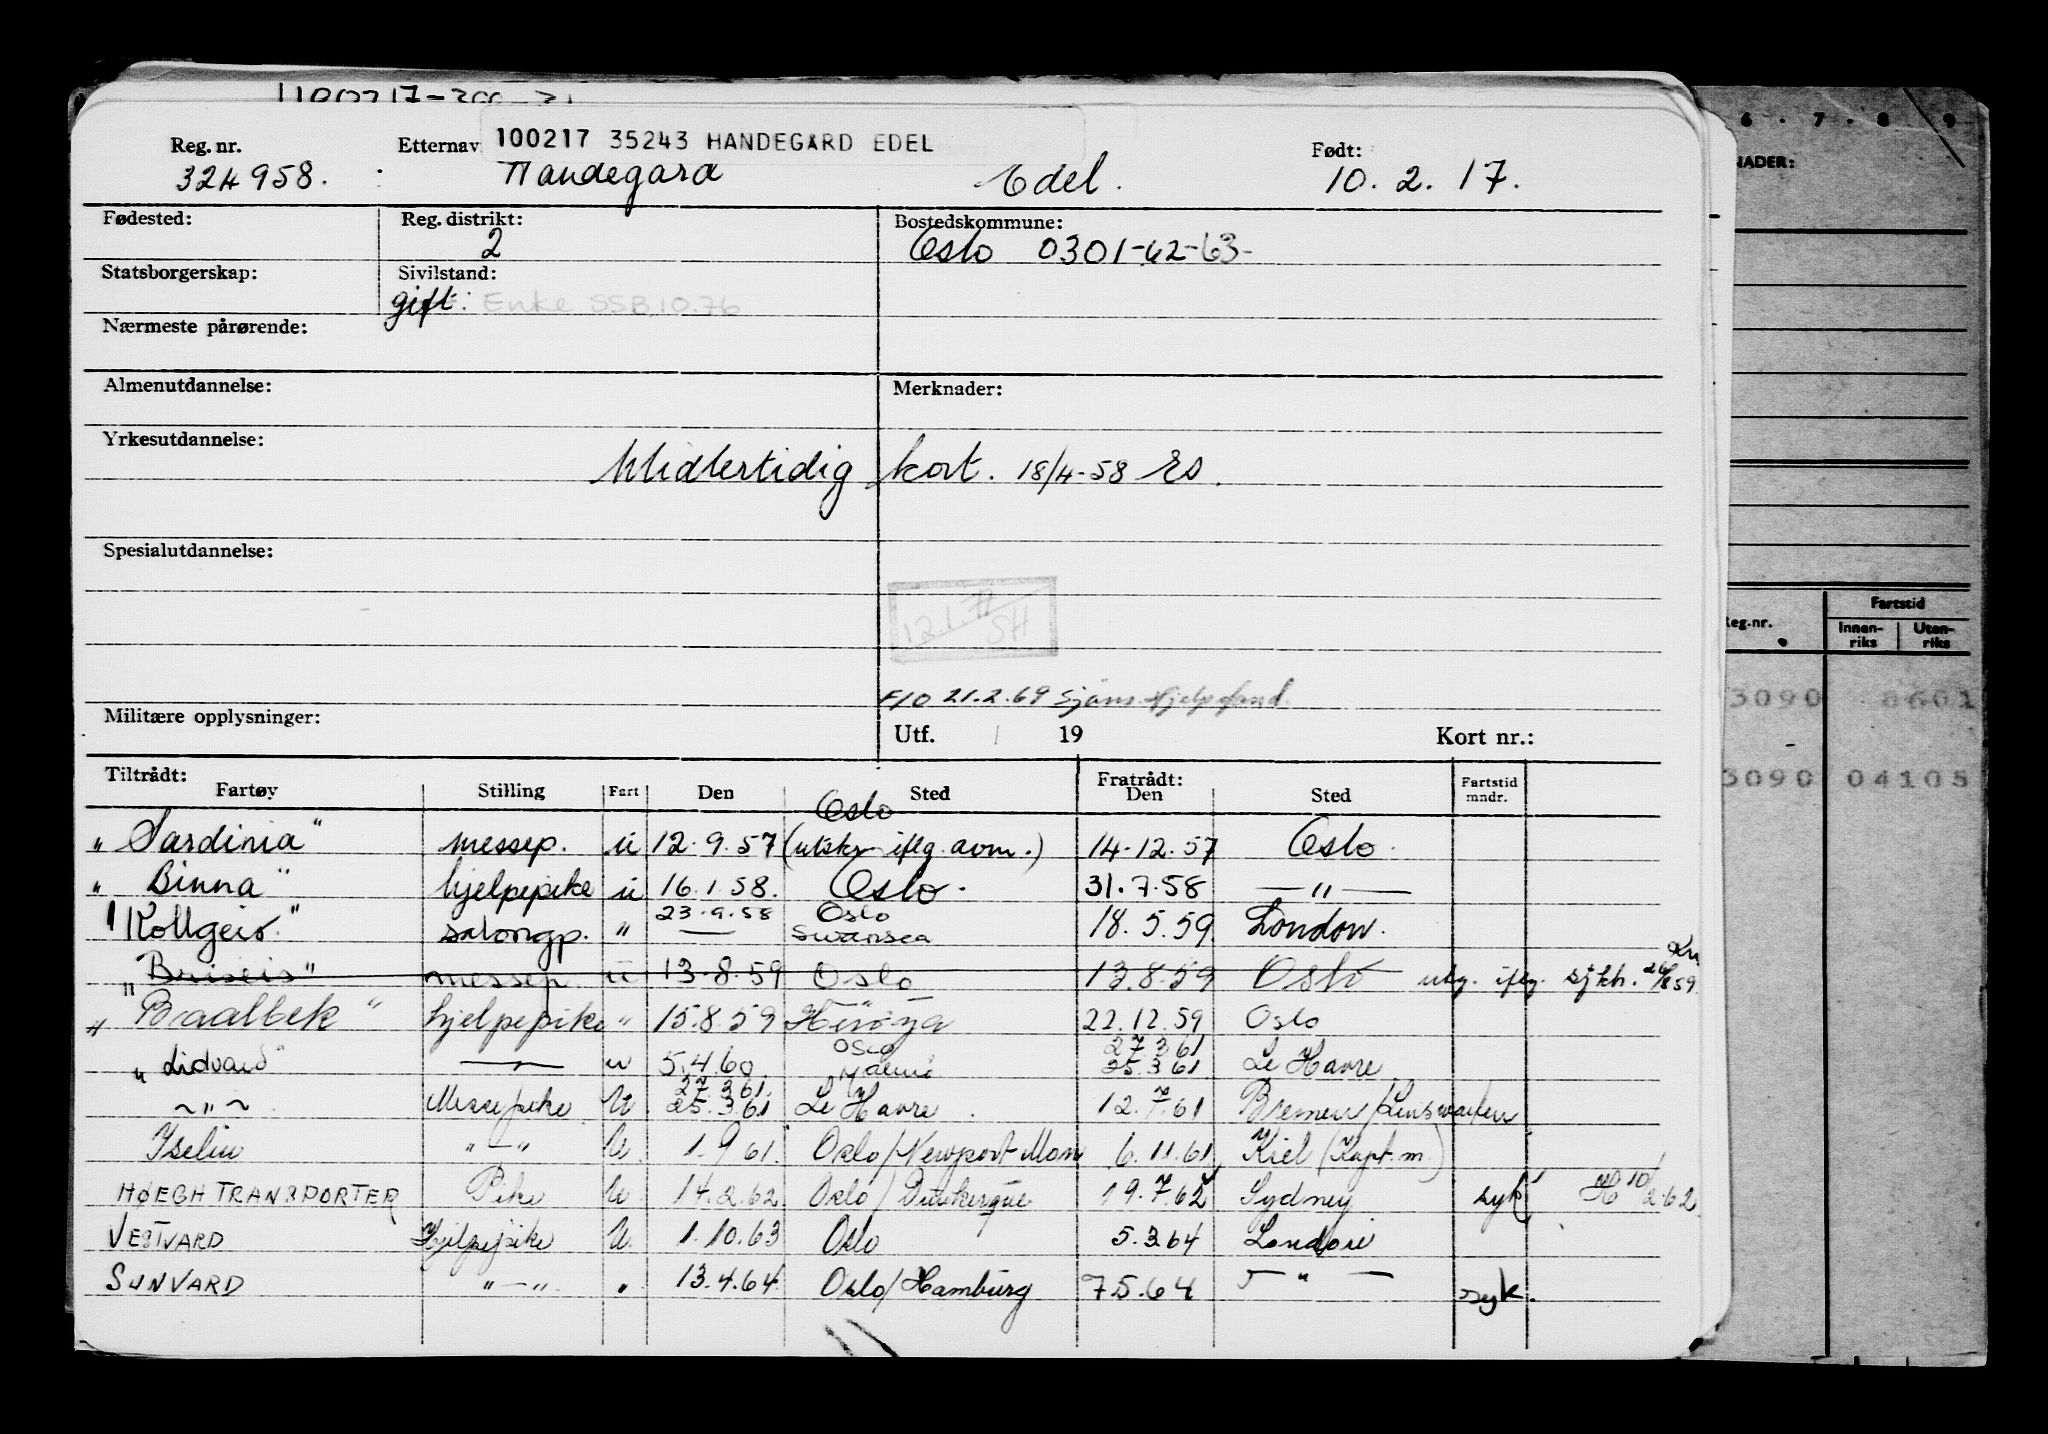 Reg. nr. Etternav 100217 35243 HANDEGÅRD EDEL Født:
324958. Handegard Edel. 10. 2. 17.
Fødested: Reg. distrikt: Bostedskommune:
2 Oslo 0301-62-63-
Statsborgerskap: Sivilstand:
gift. Enke SSB 10.76
Nærmeste pårørende:
Almenutdannelse: Merknader:
Yrkesutdannelse:
Midlertidig kort. 18/4-58
Spesialutdannelse:
12.1.77
SH
F/O 21.2.69 Sjøms. Hjelpefond.
Militære opplysninger: Utf. 19 Kort nr.:
Tiltrådt: Fratrådt: Fartstid
Fartøy Stilling Fart Den Sted Den Sted mndr.
Oslo
"Sardinia" messep. u 12.9.57 (utskr. iflg. avm.) 14.12.57 Oslo.
"Binna" hjelpepike u 16.1.58. Oslo. 31.7.58 — " —
23.9.58 Oslo
"Kollgeir" salongp. " — Swansea 18.5.59 London.
"Briseis" messep u 13.8.59 Oslo 13.8.59 Oslo utg. iflg. sjkh. 26/8 59
"Braalbek" hjelpepike " 15.8.59 Herøya 22.12.59 Oslo
Oslo 27.3.61
"Lidvard" — u 5.4.60 Malmø 25.3.61 Le Havre
27.3.61
~ " ~ Messepike U 25.3.61 Le Havre 12.7.61 Bremen/
Iselin " — " U 1.9.61. Oslo/Newport Mon 6.11.61 Kiel (Kapt. m.)
HØEGH TRANSPORTER Pike U 14.2.62 Oslo/Dunkerque 19.7.62 Sydney syk 10/2-62
VESTVARD Hjelpepike U. 1.10.63 Oslo 5.3.64 London
SUNVARD " — " " 13.4.64 Oslo/Hamburg 7.5.64 — " — syk.
6 . 7 . 8 . 9
NADER:
Reg.nr. Fartstid
Innen-riks Uten-riks
3090 8601
3090 04105